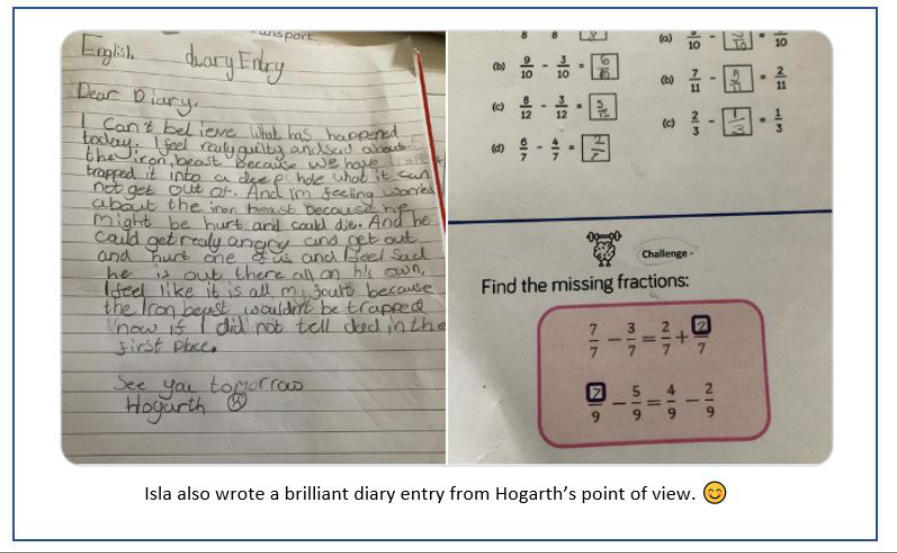 ansport
English
diary Entry
Dear Diary,
I can't believe what has happened
today. I feel realy guilty and sad about
the iron beast because we have
trapped it into a deep hole what it can
not get out of. And I'm feeling worried
about the iron beast because he
might be hurt and could die. And he
could get realy angry and get out
and hurt one of us and I feel sad
he is out there all on his own,
I feel like it is all my fault because
the Iron beast wouldn't be trapped
now if I did not tell dad in the
first place.
See you tomorrow
Hogarth
8 8 8
(b) 9/10 - 3/10 = 6/10
(c) 8/12 - 3/12 = 5/12
(d) 6/7 - 4/7 = 2/7
(a) 10 - 10 = 10
(b) 7/11 - 5/11 = 2/11
(c) 2/3 - 1/3 = 1/3
Challenge -
Find the missing fractions:
7/7 - 3/7 = 2/7 + 2/7
7/9 - 5/9 = 4/9 - 2/9
Isla also wrote a brilliant diary entry from Hogarth's point of view. 😊